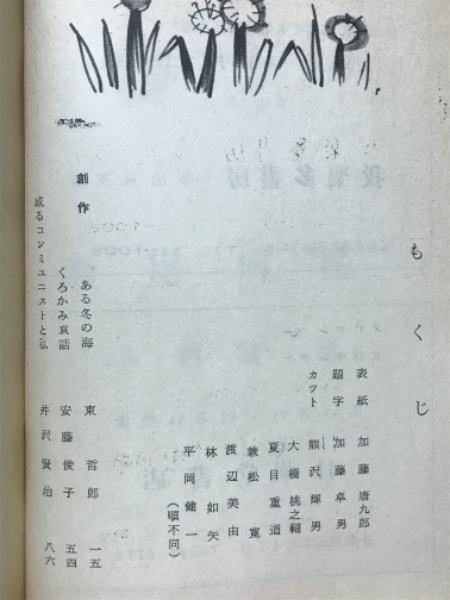 もくじ
表紙 加藤唐九郎
題字 加藤卓男
カツト 熊沢輝男
大橋桃之輔
夏目重道
兼松寛
渡辺美由
林如矢
平岡健一
(順不同)
創作
ある冬の海 東哲郎 一五
くろかみ哀話 安藤俊子 五四
或るコンミュニストと私 井沢賢治 八六